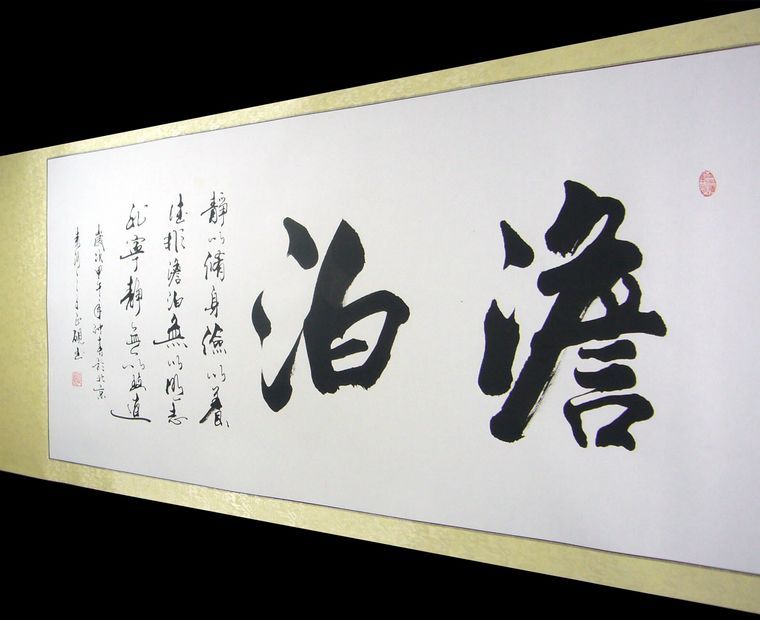 澹泊
靜以脩身儉以養
德非澹泊無以明志
非寧靜無以致遠
歲次甲午年仲春於北京